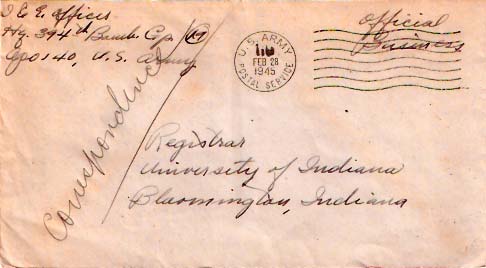 I & E officer
Hq 394th Bomb Gp (M)
APO 140, U.S. Army
U.S. ARMY
FEB 28
1945
POSTAL SERVICE
Official
Business
Correspondence
Registrar
University of Indiana
Bloomington, Indiana